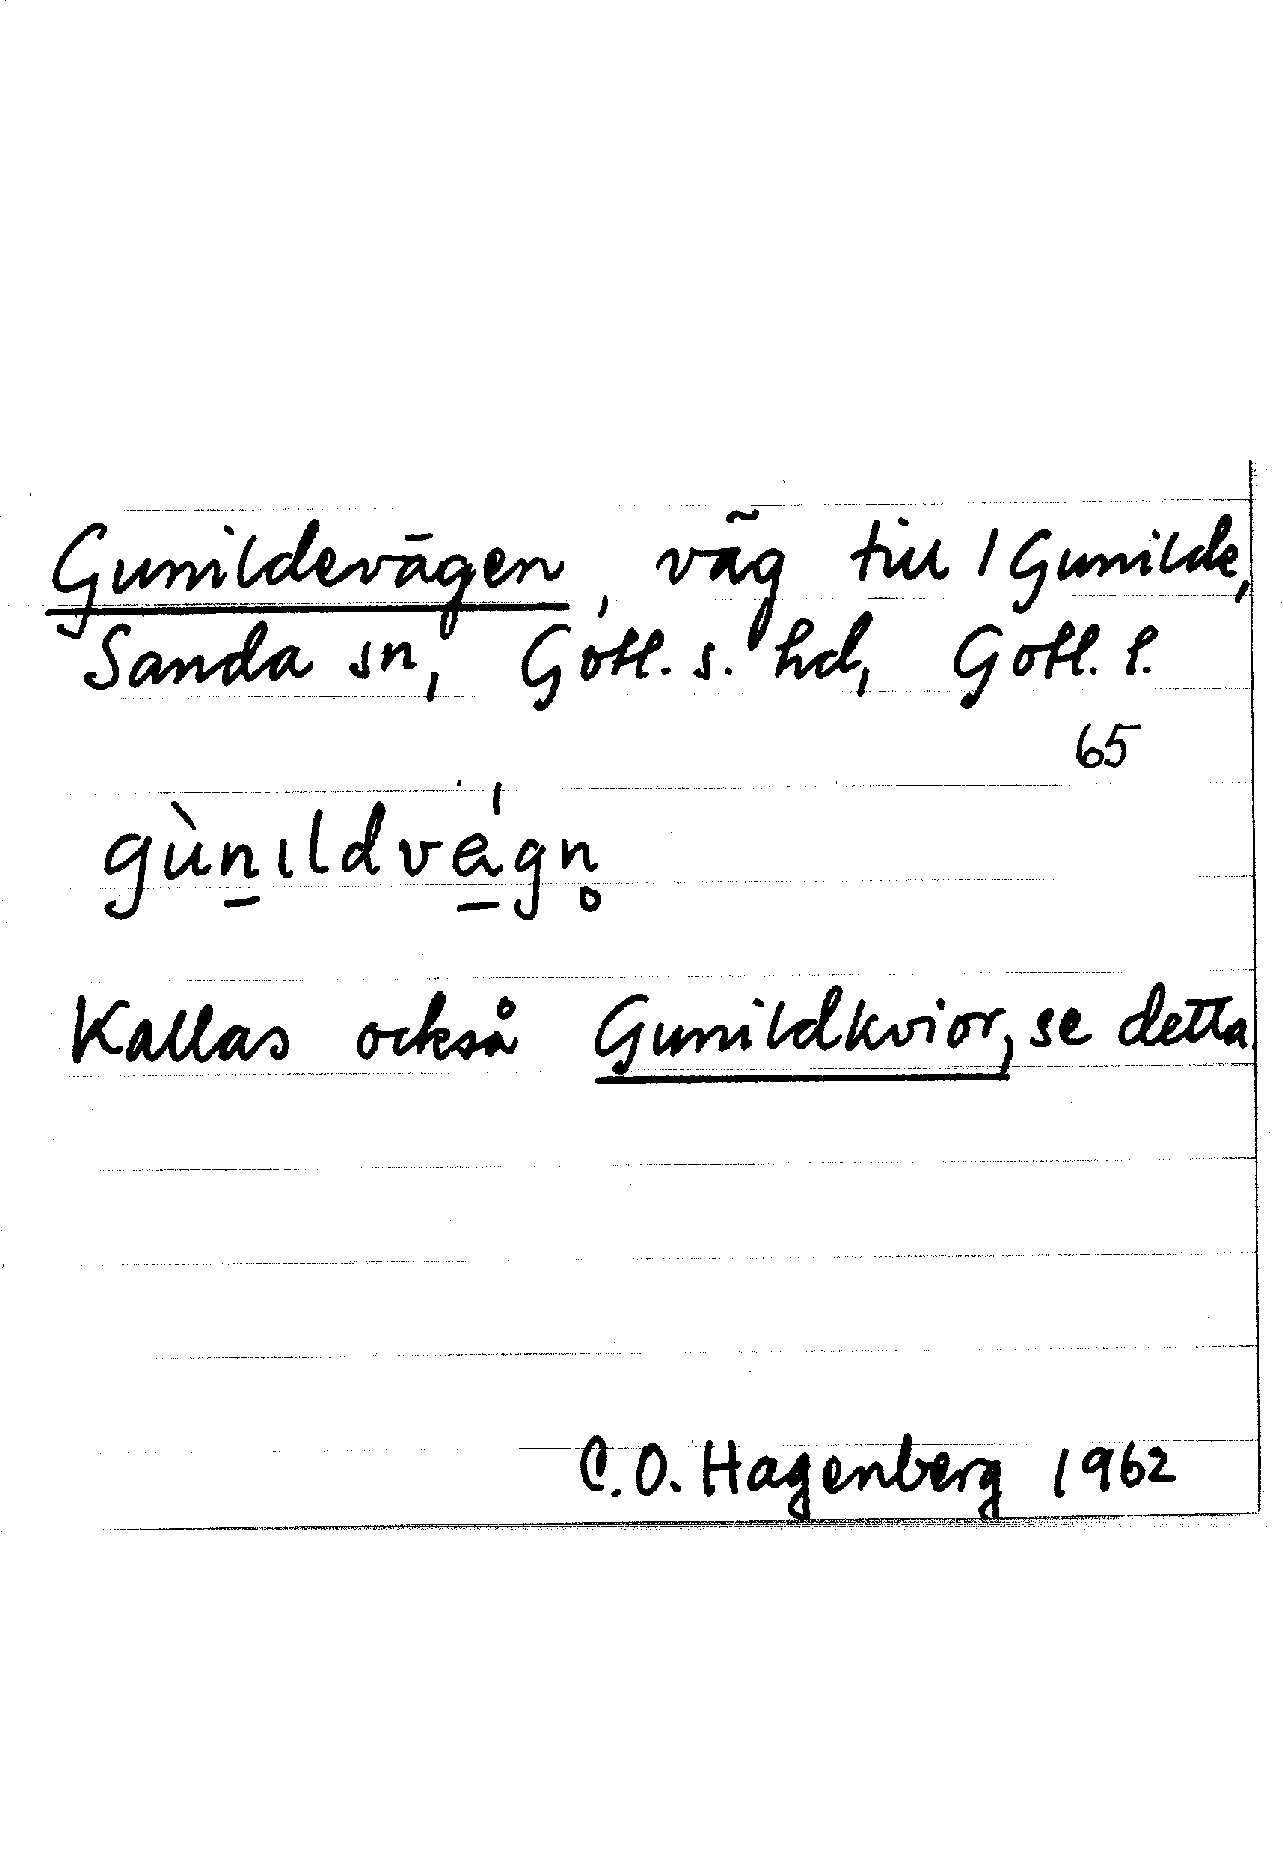 Gunildevägen, väg till 1 Gunilde,
Sanda sn, Gotl. s. hd, Gotl. l.
65
gùn̠ıldvǽ̠gn̥
Kallas också Gunildkvior, se detta.
C.O. Hagenberg 1962